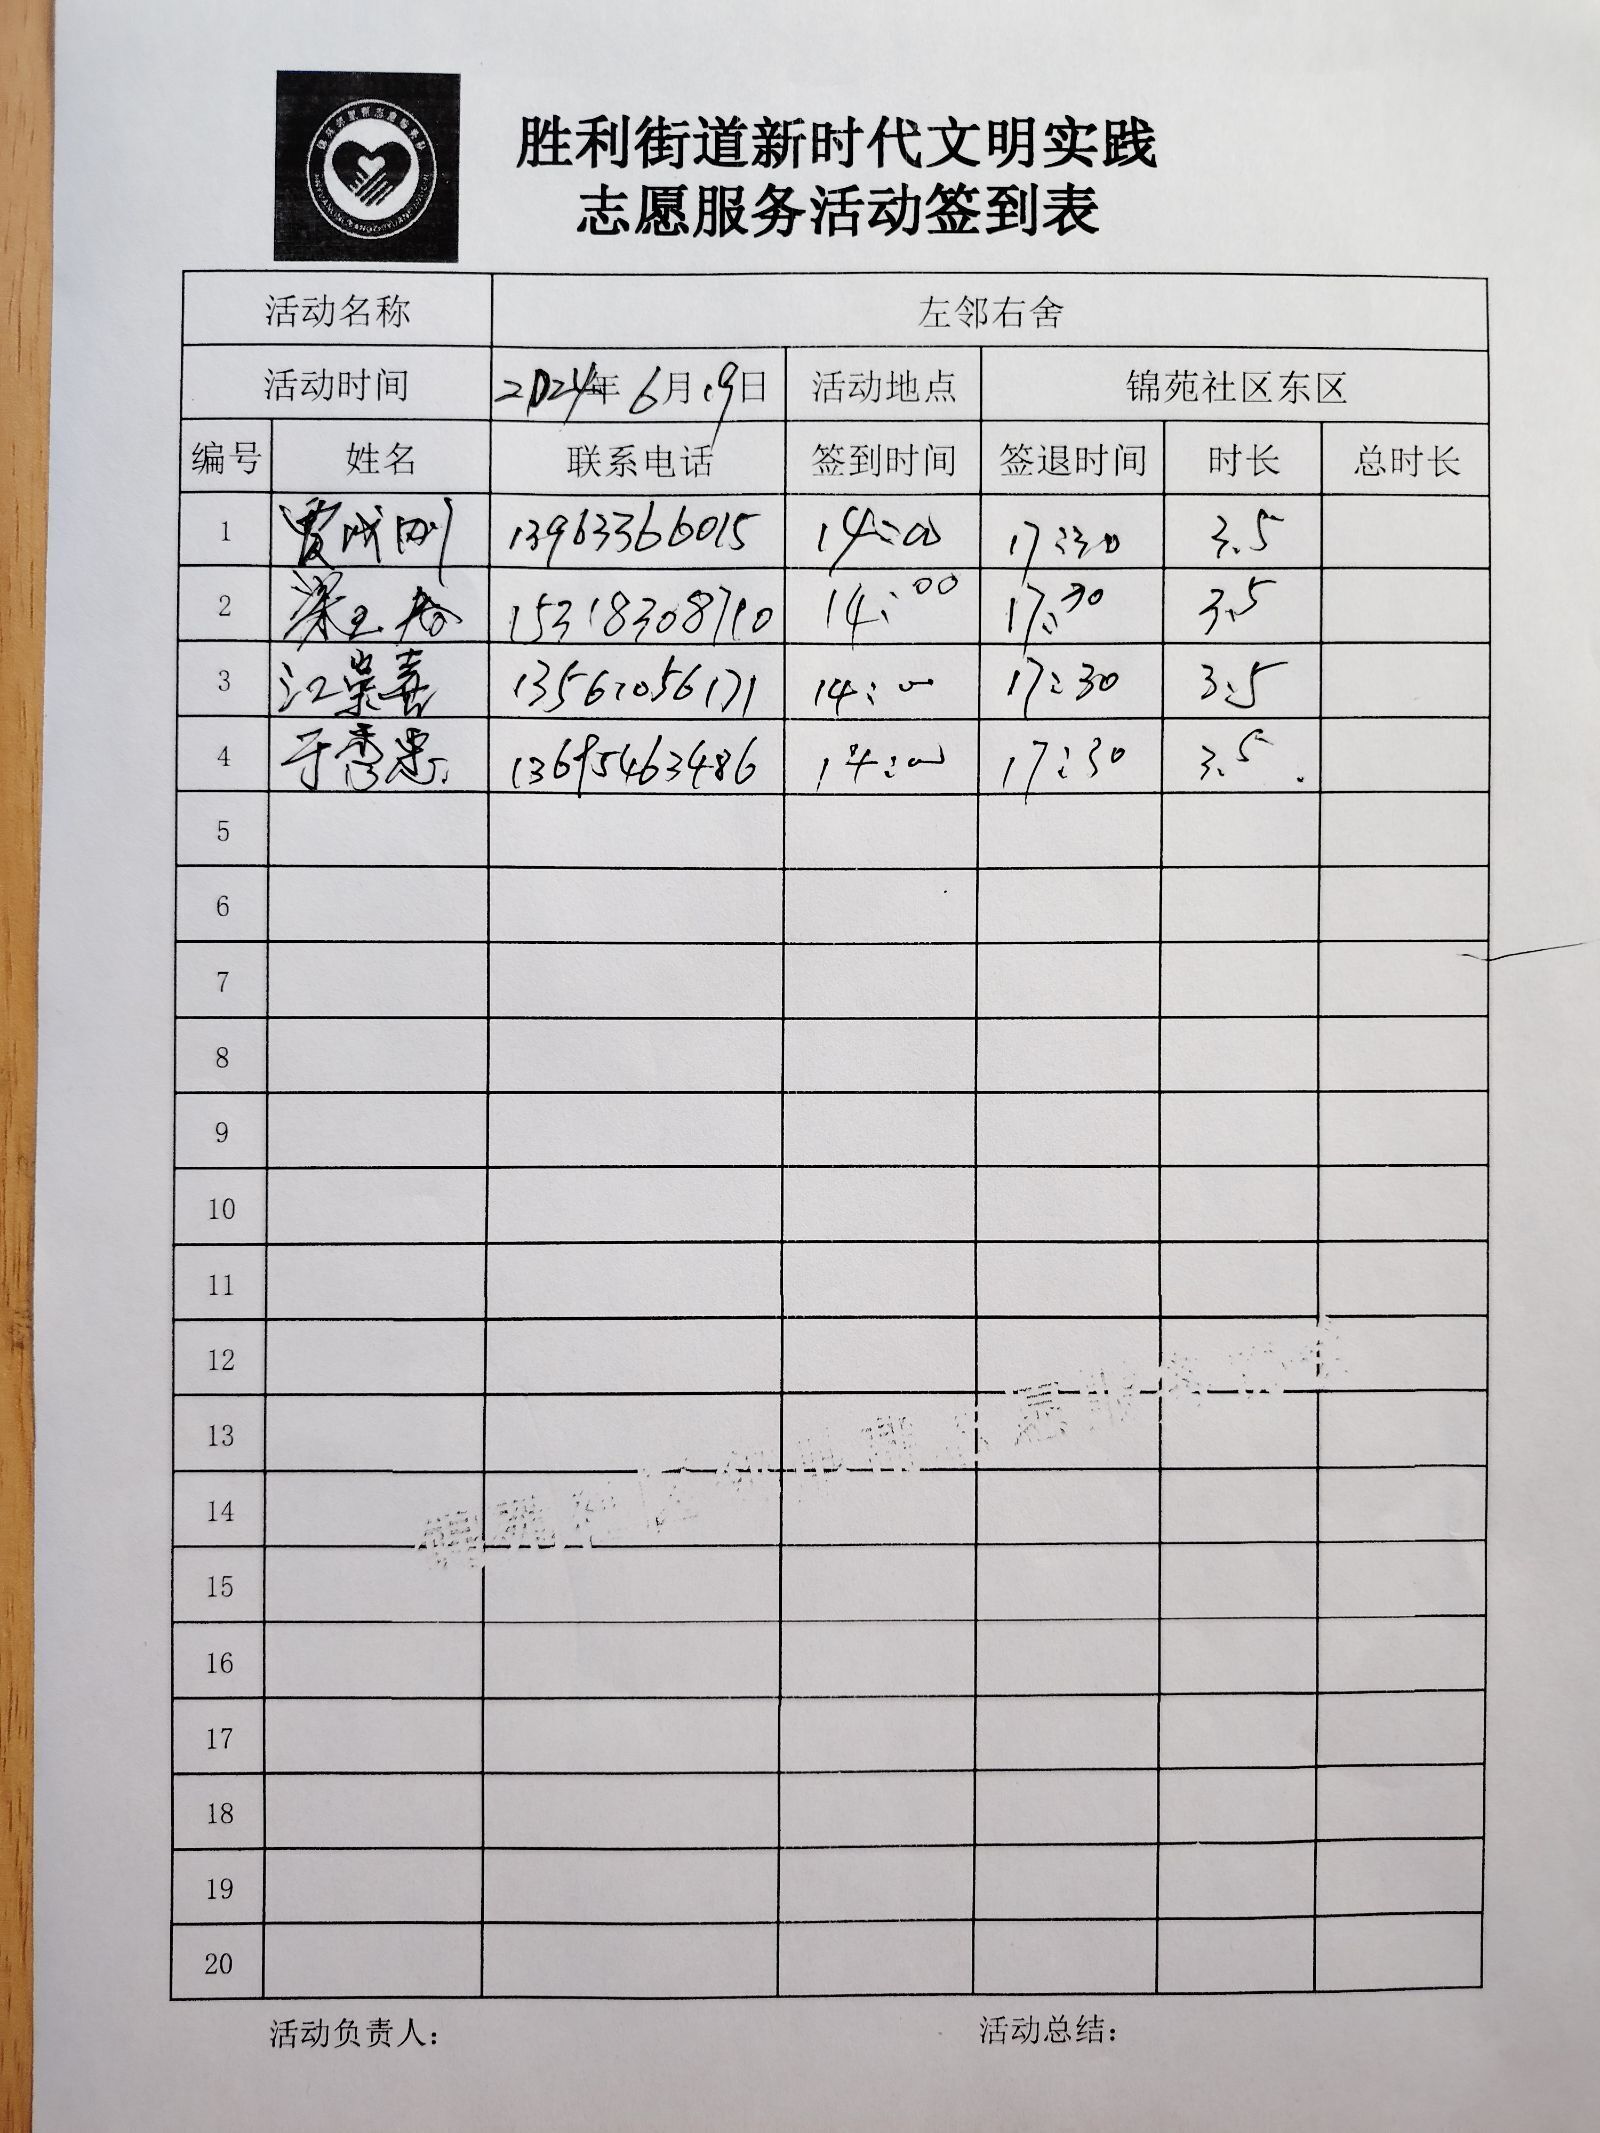 胜利街道新时代文明实践
志愿服务活动签到表
活动名称 左邻右舍
活动时间 2024年6月19日 活动地点 锦苑社区东区
编号 姓名 联系电话 签到时间 签退时间 时长 总时长
1 贾成刚 13963366015 14:00 17:30 3.5
2 梁玉 15318308710 14:00 17:30 3.5
3 江崇喜 14:00 17:30 3.5
4 于秀忠 13695463486 14:00 17:30 3.5
5
6
7
8
9
10
11
12
13
14
15
16
17
18
19
20
活动负责人: 活动总结: